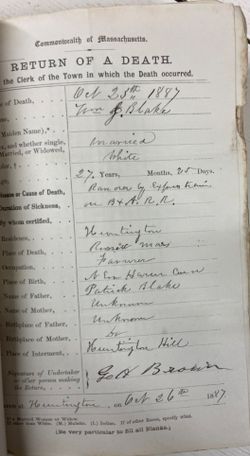 Commonwealth of Massachusetts.
RETURN OF A DEATH.
the Clerk of the Town in which the Death occurred.
e of Death, Oct 25th 1887
e, Wm J. Blake
Maiden Name),*
x, and whether single, Married, or Widowed, Married
lor, † White
ge, 27 Years, Months, 25 Days.
Disease or Cause of Death, Ran over by Express train
Duration of Sickness, on B & A. R. R.
By whom certified,
Residence, Huntington
Place of Death, Russell Mass
Occupation, Farmer
Place of Birth, Haven Conn
Name of Father, Patrick Blake
Name of Mother, Unknown
Birthplace of Father, Unknown
Birthplace of Mother, Do
Place of Interment, Huntington Hill
Signature of Undertaker or other person making the Return, Geo H Brown
at Huntington, on Oct 26th 1887
If a Married Woman or Widow.
If other than White. (M.) Mulatto. (I.) Indian. If of other Races, specify what.
[Be very particular to fill all Blanks.]